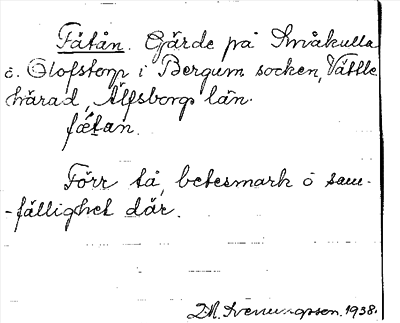 Fåtån. Gärde på Småkulla
ö. Olofstorp i Bergum socken, Vättle
härad, Älfsborgs län.
fætan.
Förr tå, betesmark o sam-
-fällighet där.
1938.